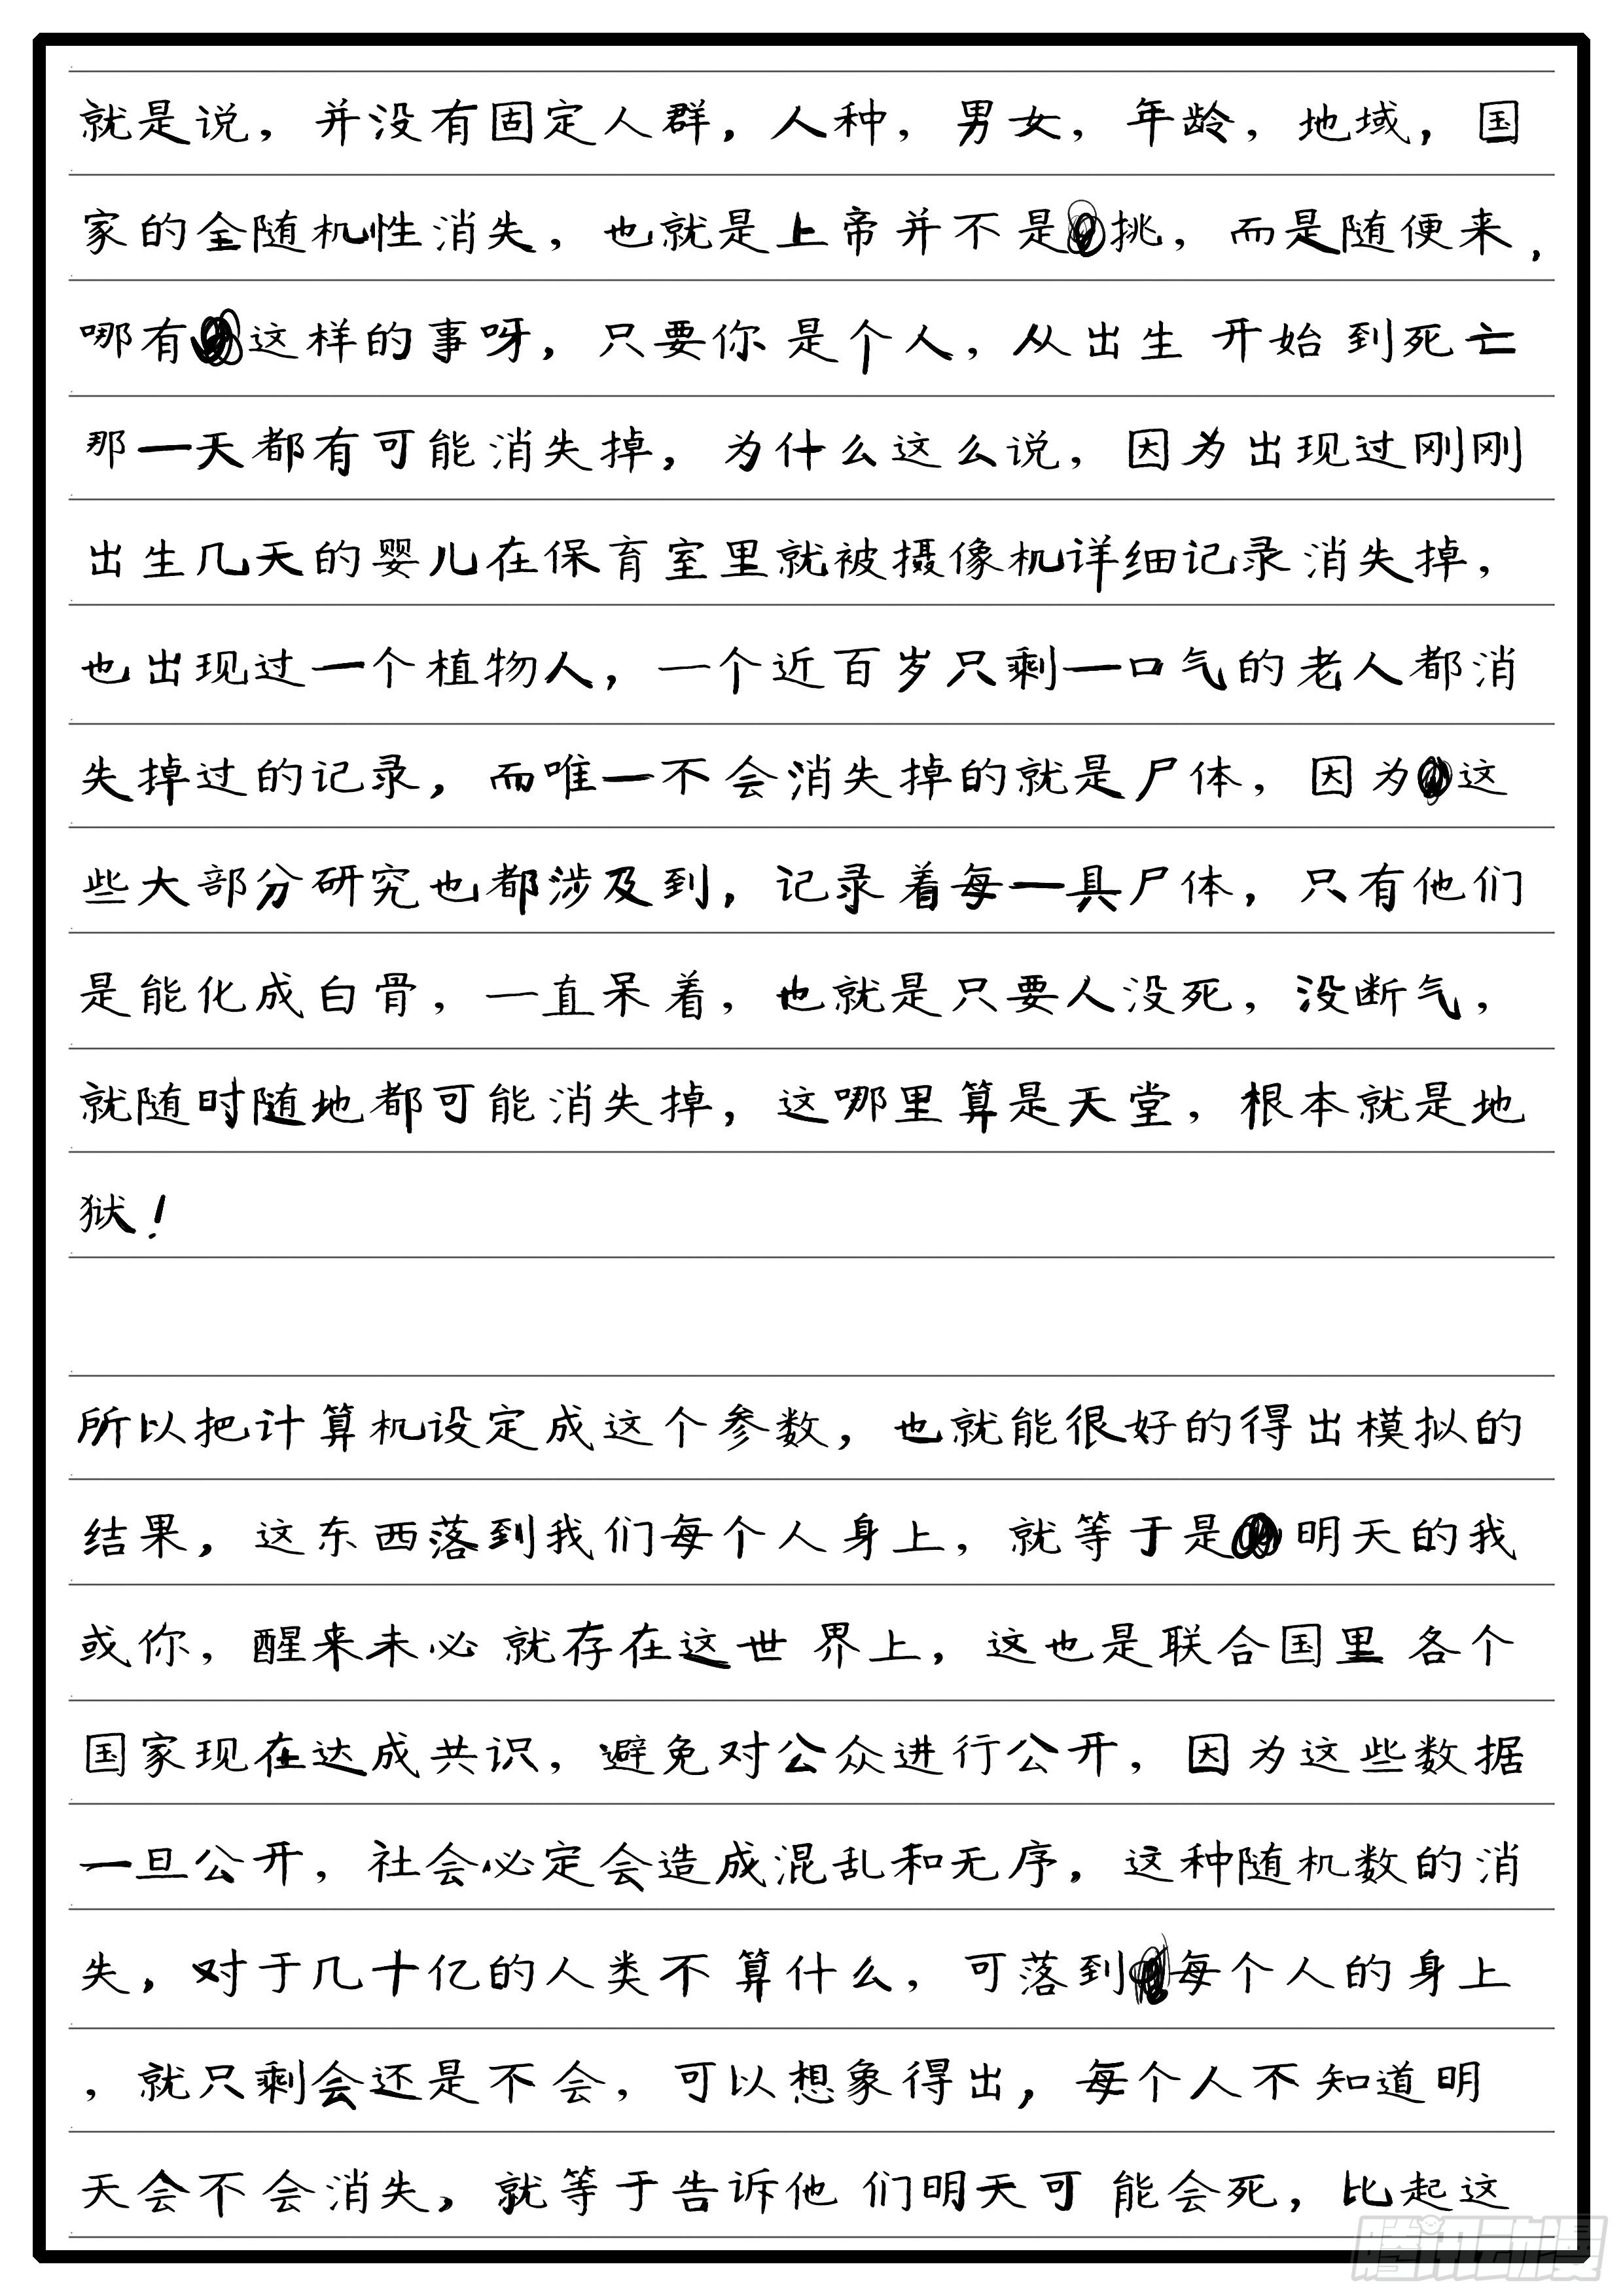 就是说，并没有固定人群，人种，男女，年龄，地域，国
家的全随机性消失，也就是上帝并不是挑，而是随便来，
哪有这样的事呀，只要你是个人，从出生开始到死亡
那一天都有可能消失掉，为什么这么说，因为出现过刚刚
出生几天的婴儿在保育室里就被摄像机详细记录消失掉，
也出现过一个植物人，一个近百岁只剩一口气的老人都消
失掉过的记录，而唯一不会消失掉的就是尸体，因为这
些大部分研究也都涉及到，记录着每一具尸体，只有他们
是能化成白骨，一直呆着，也就是只要人没死，没断气，
就随时随地都可能消失掉，这哪里算是天堂，根本就是地
狱！
所以把计算机设定成这个参数，也就能很好的得出模拟的
结果，这东西落到我们每个人身上，就等于是明天的我
或你，醒来未必就存在这世界上，这也是联合国里各个
国家现在达成共识，避免对公众进行公开，因为这些数据
一旦公开，社会必定会造成混乱和无序，这种随机数的消
失，对于几十亿的人类不算什么，可落到每个人的身上
，就只剩会还是不会，可以想象得出，每个人不知道明
天会不会消失，就等于告诉他们明天可能会死，比起这
腾讯动漫